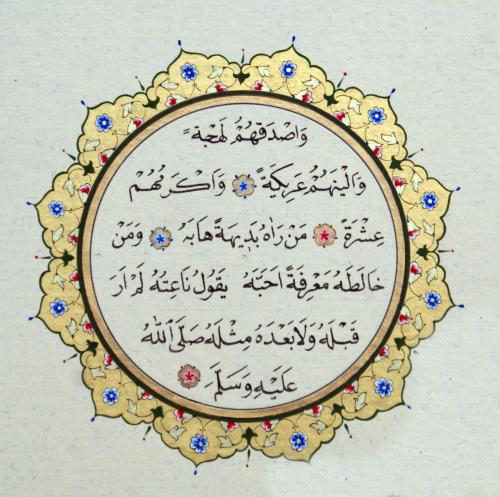 وَاَصْدَقُهُمْ لَهْجَةً
وَاَلْيَنُهُمْ عَرِيكَةً وَاَكْرَمُهُمْ
عِشْرَةً مَنْ رَاٰهُ بَدِيهَةً هَابَهُ وَمَنْ
خَالَطَهُ مَعْرِفَةً اَحَبَّهُ يَقُولُ نَاعِتُهُ لَمْ اَرَ
قَبْلَهُ وَلَا بَعْدَهُ مِثْلَهُ صَلَّى اللّٰهُ
عَلَيْهِ وَسَلَّمَ